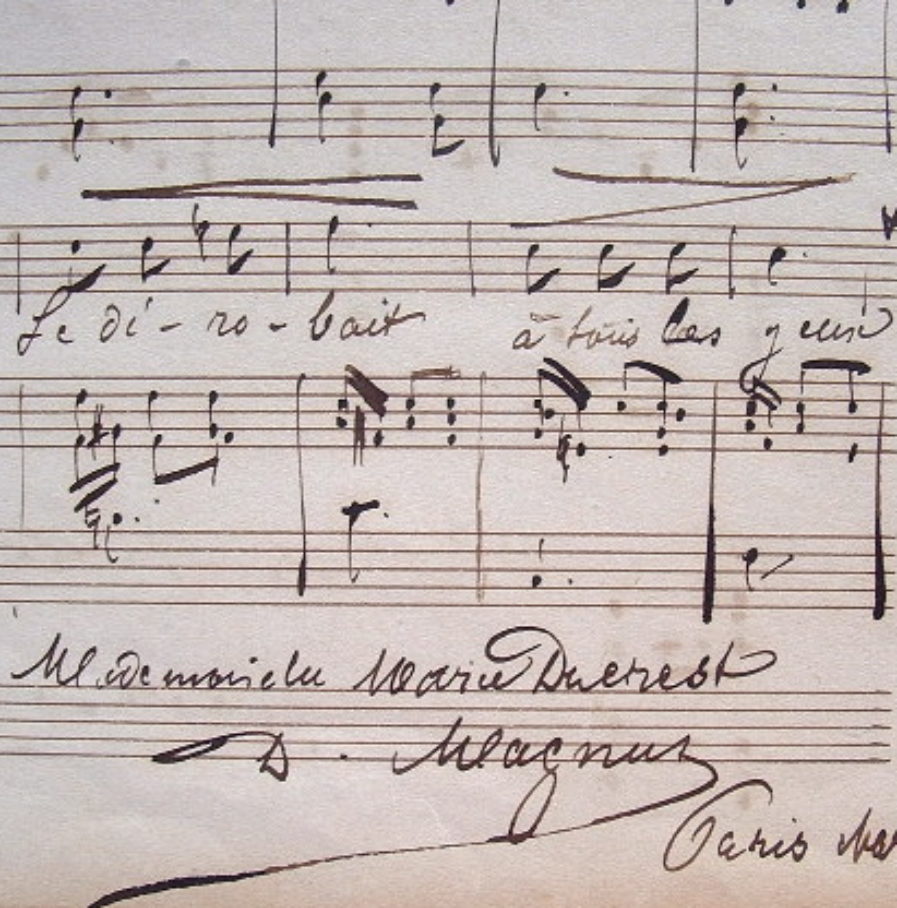 Se dé - ro - bait à tous les yeux
Mademoiselle Marie Ducrest
D. Magnus
Paris Mar